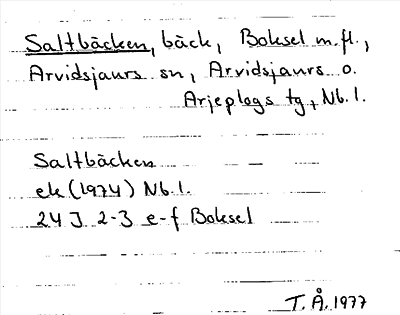 Saltbäcken, bäck, Boksel m.fl.,
Arvidsjaurs sn, Arvidsjaurs o.
Arjeplogs tg, Nb. l.
Saltbäcken
ek (1974) Nb. l.
24 J 2-3 e-f Boksel
T. Å. 1977